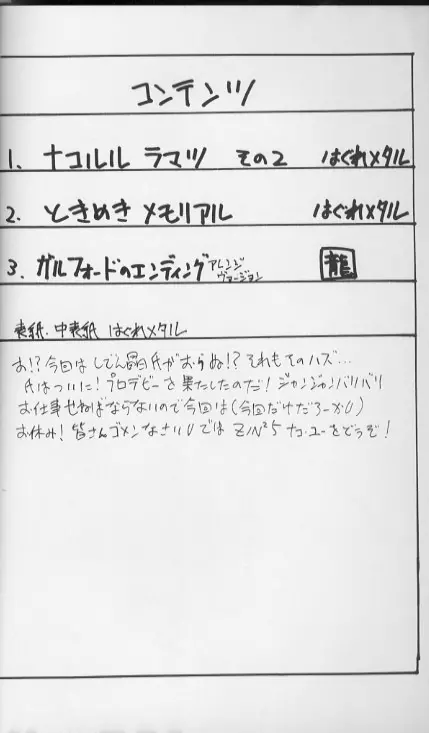 コンテンツ
1. ナコルル ラマツ その2 はぐれメタル
2. ときめきメモリアル はぐれメタル
3. ガルフォードのエンディング アレンジヴァージョン 龍
表紙・中表紙 はぐれメタル
お!?今回はしでん晶氏がおらぬ!?それもそのハズ…
氏はついに!プロデビーを果たしたのだ!ジャンジャンバリバリ
お仕事せねばならないので今回は(今回だけだろーが)
お休み!皆さんゴメンなさい では ナコ・ユーをどうぞ!